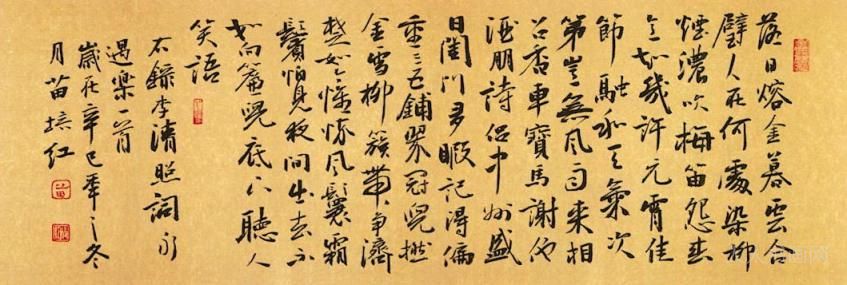 落日熔金暮雲合
璧人在何處染柳
煙濃吹梅笛怨春
意知幾許元宵佳
節融和天氣次
第豈無風雨來相
召香車寶馬謝他
酒朋詩侶中州盛
日閨門多暇記得偏
重三五鋪翠冠兒撚
金雪柳簇帶爭濟
楚如今憔悴風鬟霜
鬢怕見夜間出去不
如向簾兒底下聽人
笑語
右錄李清照詞永
遇樂一首
歲在辛巳年之冬
月苗培红